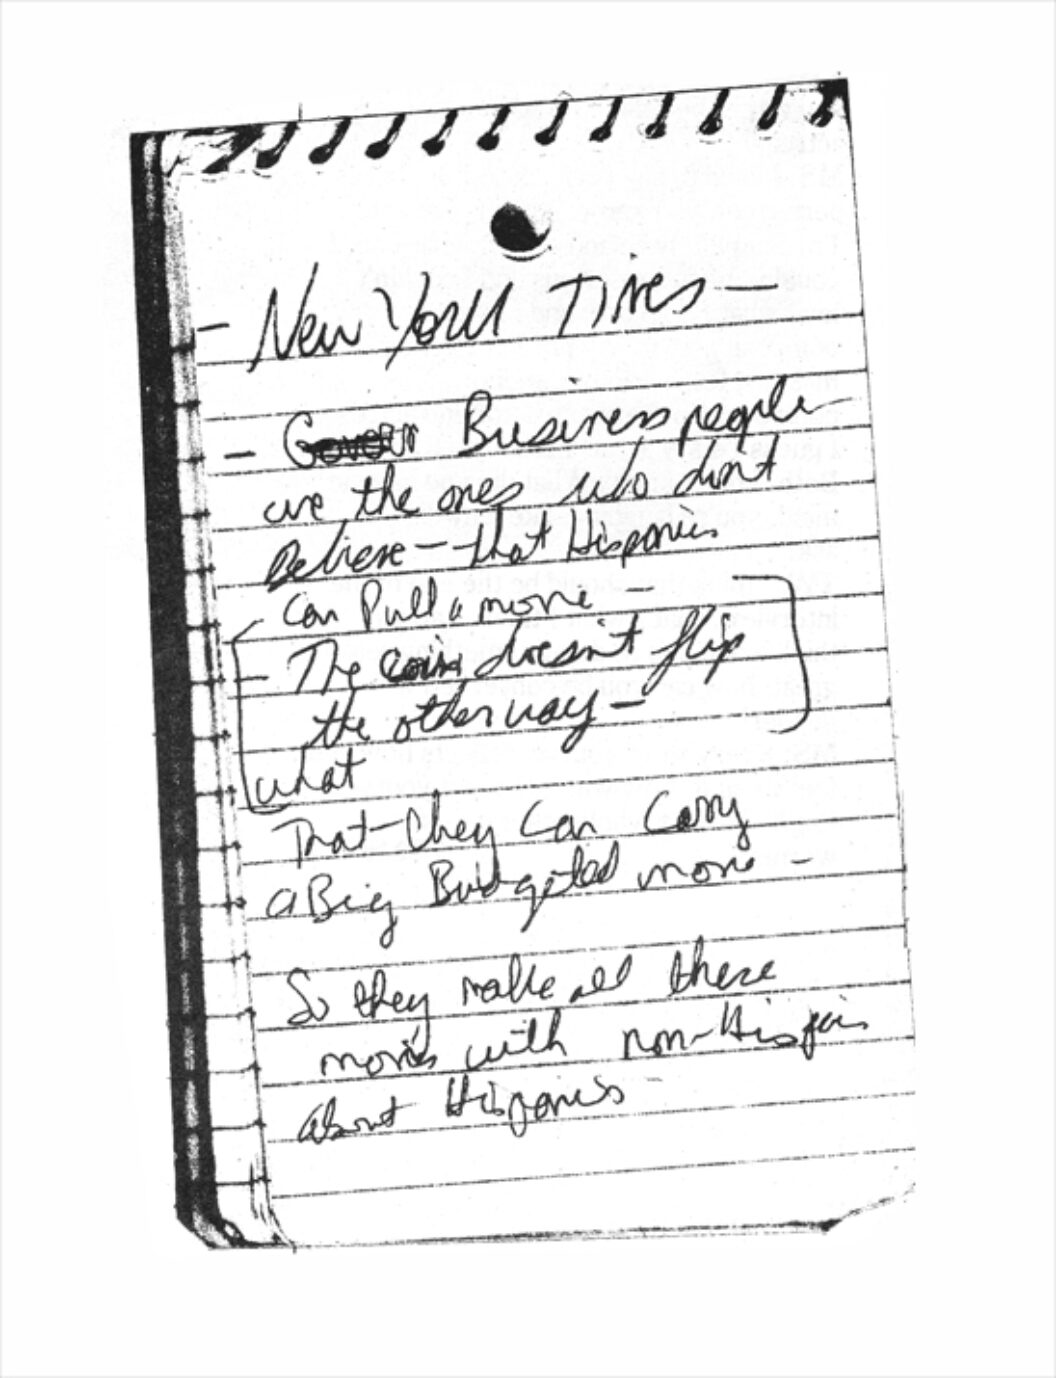 - New York Times -
- Business people
are the ones who don't
Believe - that Hispanics
Can Pull a movie -
- The coin doesn't flip
the other way -
what
That they Can Carry
a Big Budgeted movie -
So they make all these
movies with non-Hispanics
about Hispanics -